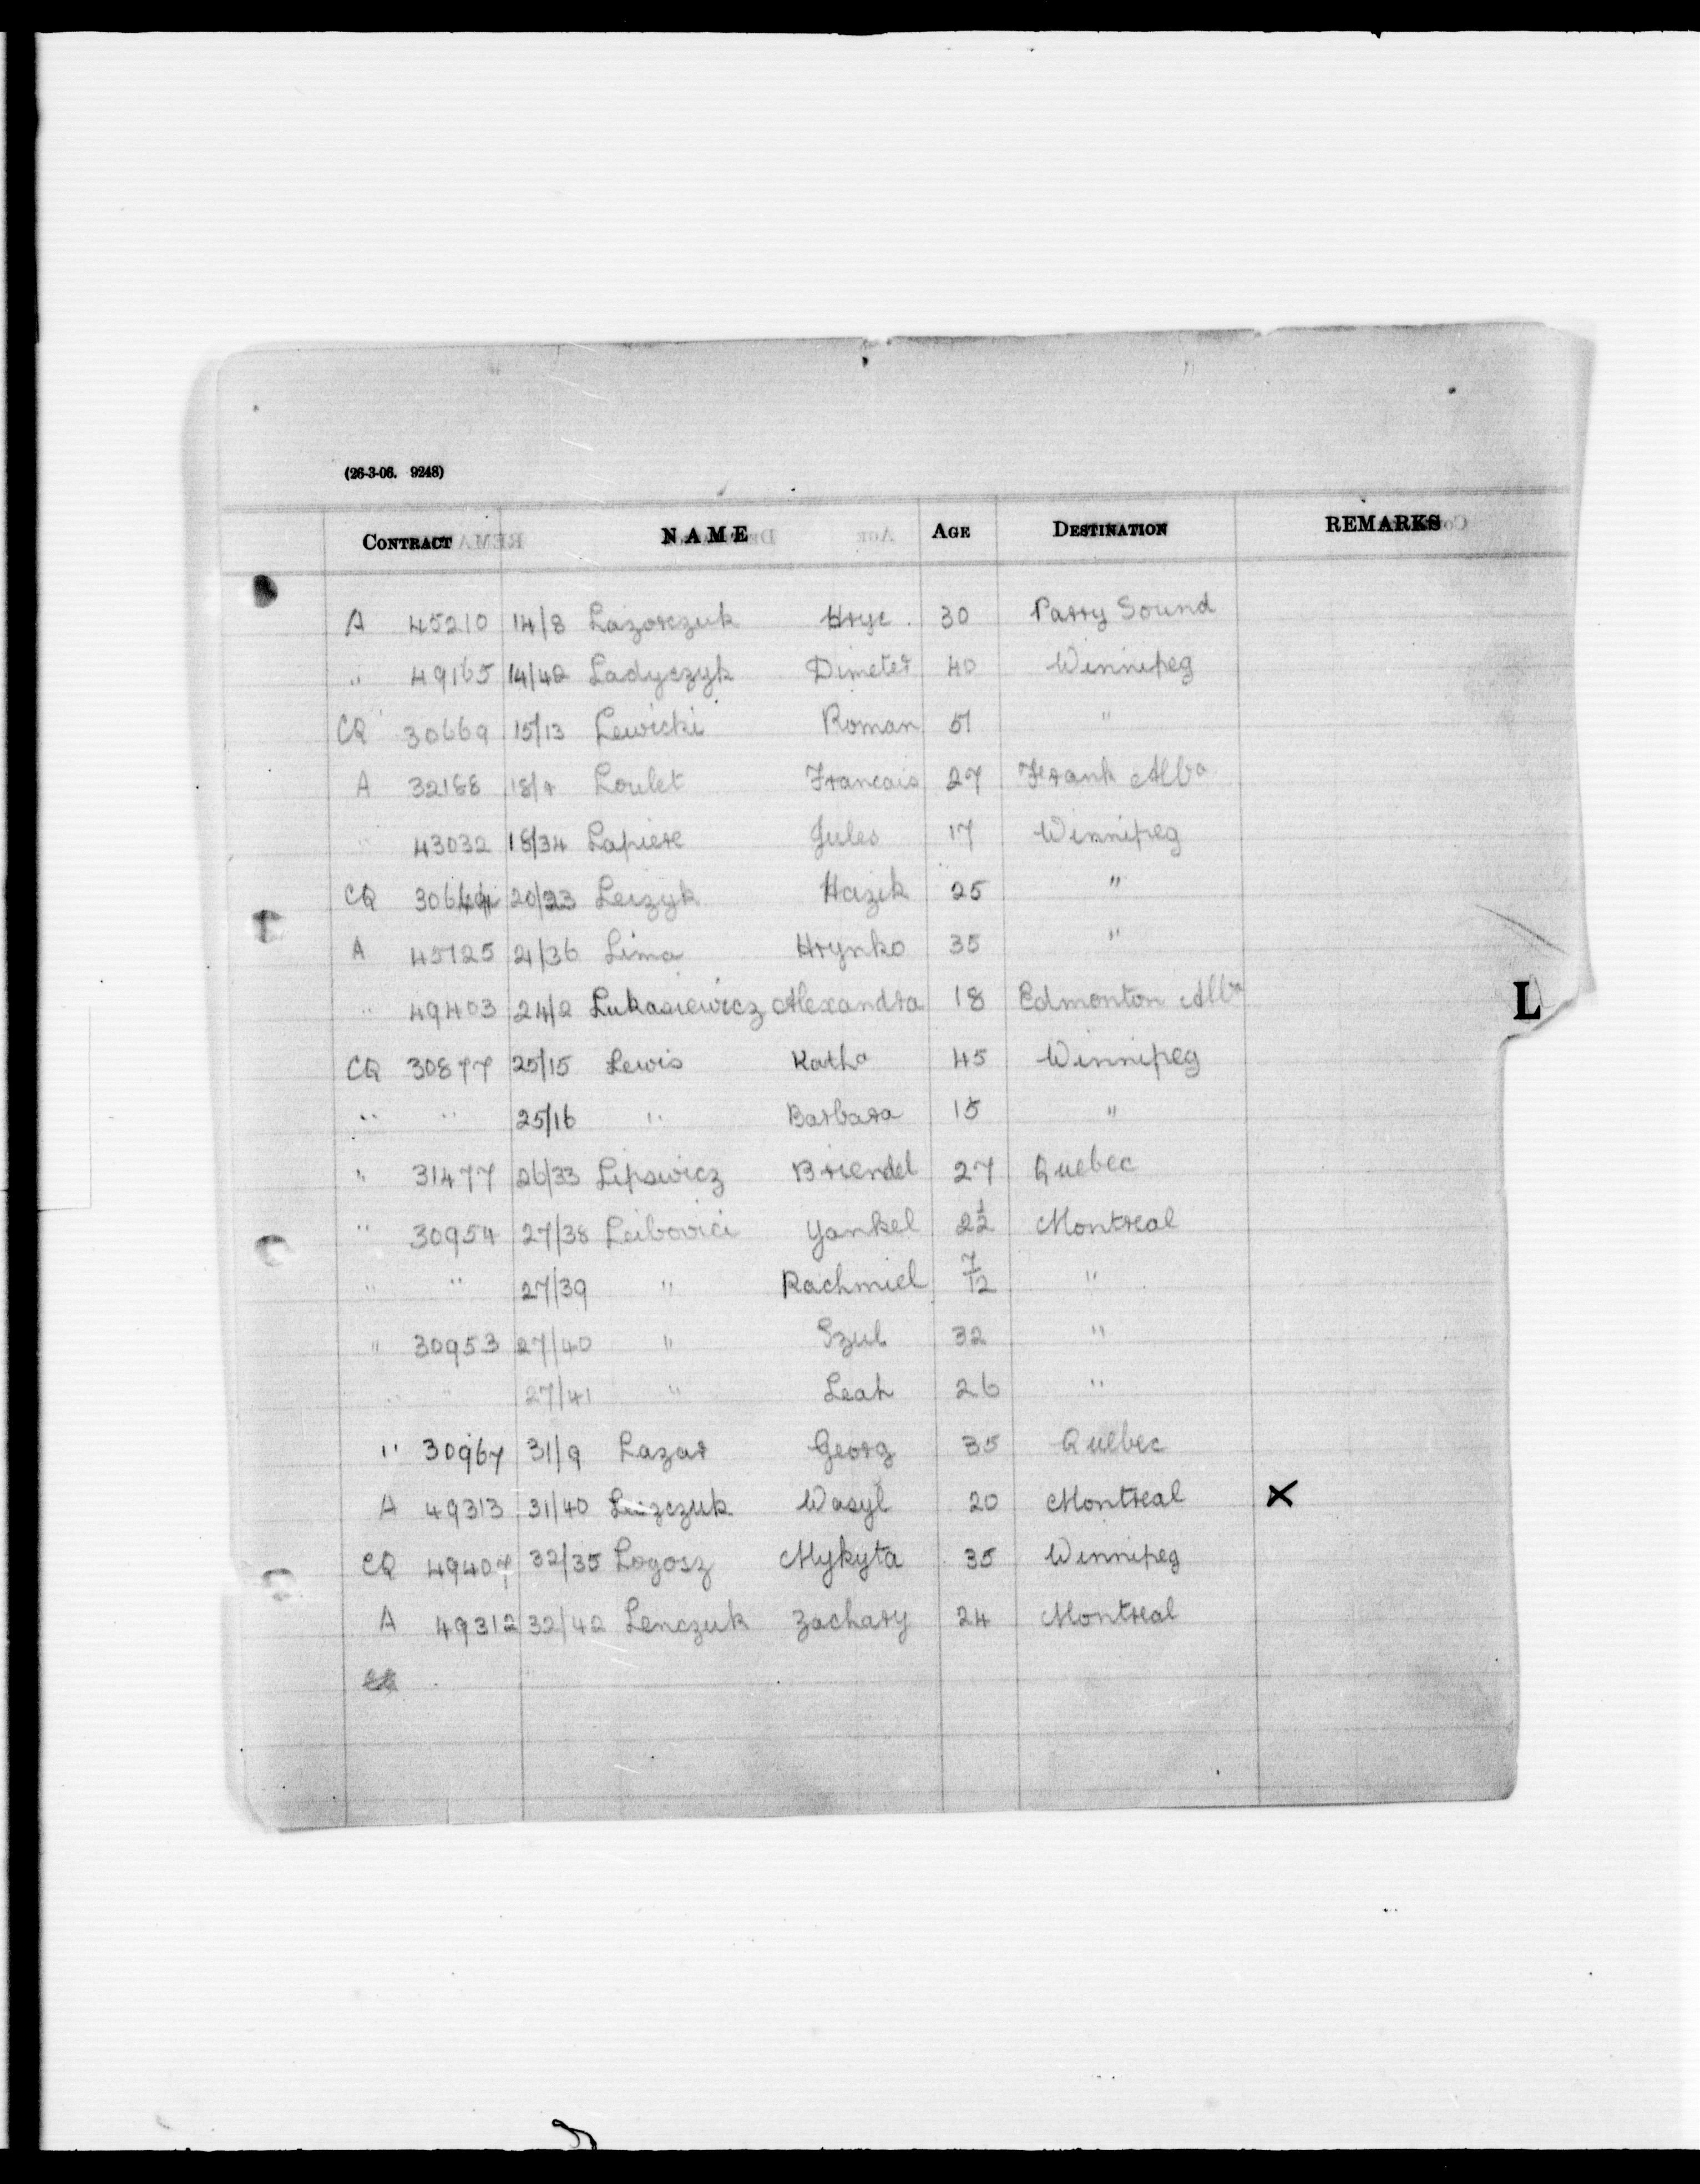 (26-3-06. 9248)
CONTRACT NAME AGE DESTINATION REMARKS
A 45210 14/8 Lazorczuk Hryc. 30 Parry Sound
" 49165 14/42 Ladyczyk Dimeter 40 Winnipeg
CQ 30669 15/13 Lewicki Roman 51 "
A 32188 18/9 Loulet Francais 27 Frank Alba
" 43032 18/34 Lapiere Jules 17 Winnipeg
CQ 20/23 Leizyk Hazik 25 "
A 45725 21/36 Lima Hrynko 35 "
" 49403 24/2 Lukasiewicz Alexandra 18 Edmonton Alba
L
CQ 30877 25/15 Lewis Katha 45 Winnipeg
" " 25/16 " Barbara 15 "
" 31477 26/33 Lipswicz Briendel 27 Quebec
" 30954 27/38 Leibovici Yankel 2½ Montreal
" " 27/39 " Rachmiel 7/12 "
" 30953 27/40 " Szul 32 "
" " 27/41 " Leah 26 "
" 30967 31/9 Lazar Georg 35 Quebec
A 49313 31/40 Leszczuk Wasyl 20 Montreal X
CQ 49407 32/35 Logosz Mykyta 35 Winnipeg
A 49312 32/42 Lenczuk Zachary 24 Montreal